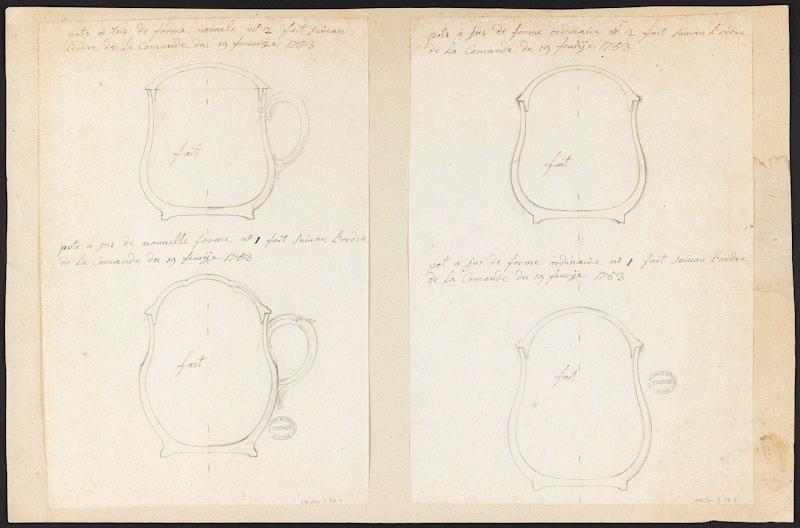 pots a Jus de forme nouvele n° 2 fait suivan
Lordre de La Comande du 19 feuvrÿe 1753
fait
pots a jus de nouvelle forme n° 1 fait suivan Lordre
de La Comande du 19 feuvrÿe 1753
fait
pots a jus de forme ordinaire n° 2 fait suivan Lordre
de La Comande du 19 feuvrÿe 1753
fait
pot a jus de forme ordinaire n° 1 fait suivan Lordre
de La Comande du 19 feuvrÿe 1753
fait